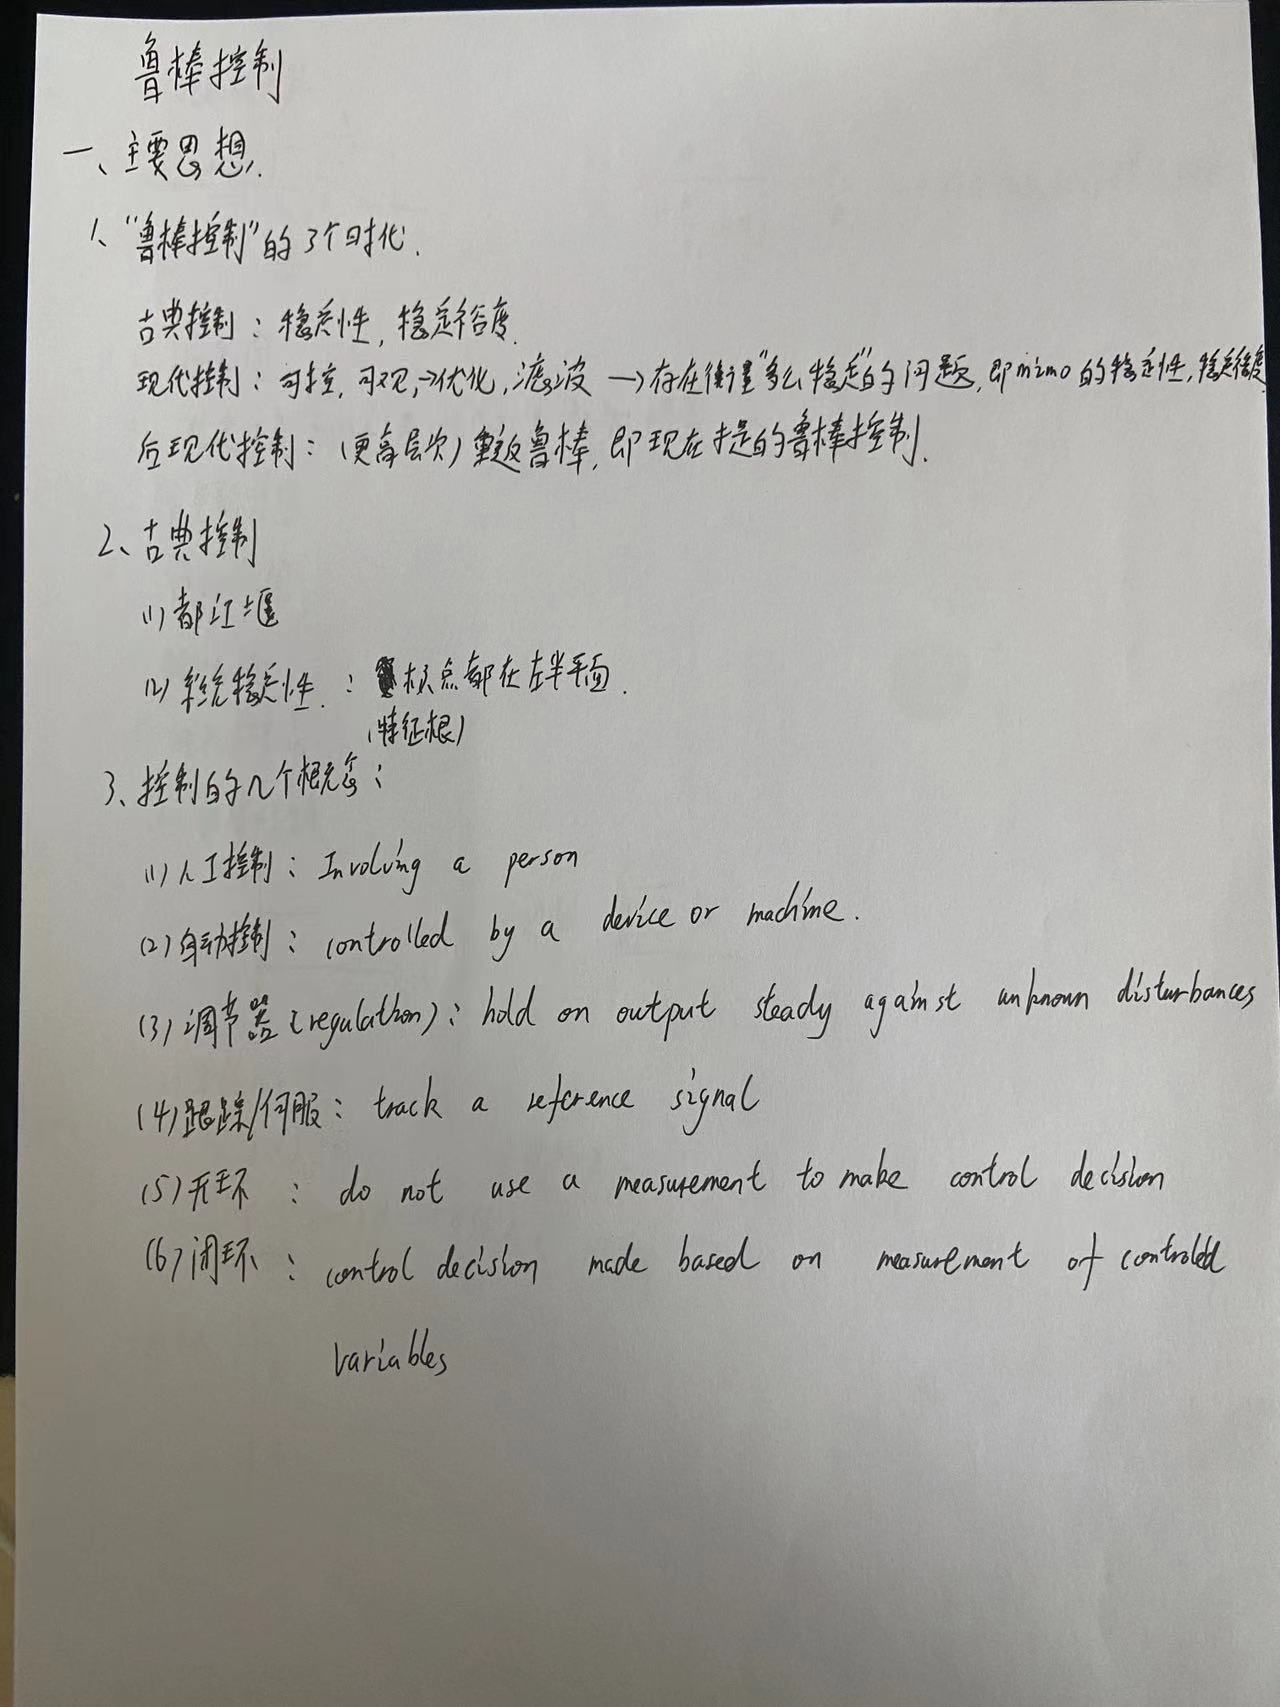 鲁棒控制
一、主要思想.
1、"鲁棒控制"的3个时代.
古典控制：稳定性，稳定裕度.
现代控制：可控，可观，→优化，滤波 → 存在衡量"多么稳定"的问题，即mimo的稳定性，稳定裕度.
后现代控制：（更高层次）重返鲁棒，即现在提的鲁棒控制.
2、古典控制
(1) 都江堰
(2) 系统稳定性.：极点都在左半平面.
(特征根)
3、控制的几个概念：
(1) 人工控制：Involving a person
(2) 自动控制：controlled by a device or machine.
(3) 调节器（regulation）：hold on output steady against unknown disturbances
(4) 跟踪/伺服：track a reference signal
(5) 开环：do not use a measurement to make control decision
(6) 闭环：control decision made based on measurement of controlled
variables